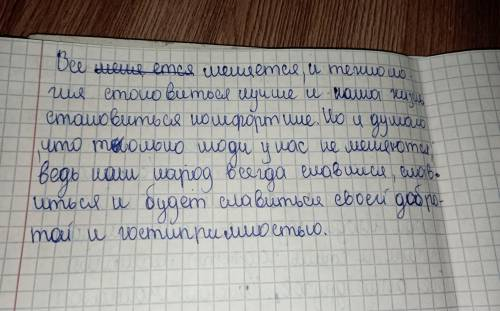 Все меняется меняется, и техноло-
гия становиться лучше и наша жизнь
становиться комфортние. Но я думаю
, что только люди у нас не меняются,
ведь наш народ всегда славился, слав-
иться и будет славиться своей добро-
той и гостиприимностью.